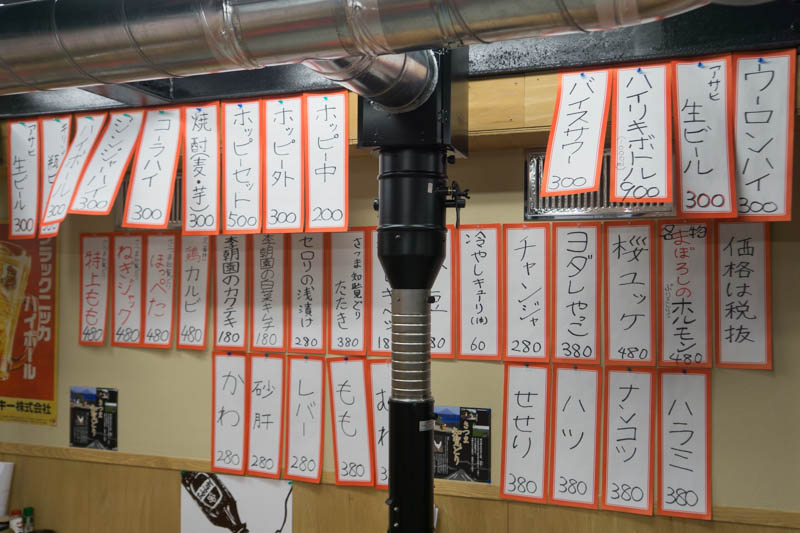 アサヒ
生ビール
300
キリン
300
ハイボール
300
ジンジャーハイ
300
コーラハイ
300
焼酎(麦・芋)
300
ホッピーセット
500
ホッピー外
300
ホッピー中
200
バイスサワー
300
ハイリキボトル
900
アサヒ
生ビール
300
ウーロンハイ
300
特上もも
480
ねぎジャック
480
ほっぺた
480
鶏カルビ
480
李朝園のカクテキ
180
李朝園の白菜キムチ
180
セロリの浅漬け
280
さつま知覧どり
たたき
380
180
冷やしキューリ(1本)
60
チャンジャ
280
ヨダレやっこ
380
桜ユッケ
480
名物
まぼろしのホルモン
480
価格は税抜
かわ
280
砂肝
280
レバー
380
もも
380
せせり
380
ハツ
380
ナンコツ
380
ハラミ
380
ブラックニッカ
ハイボール
キー株式会社